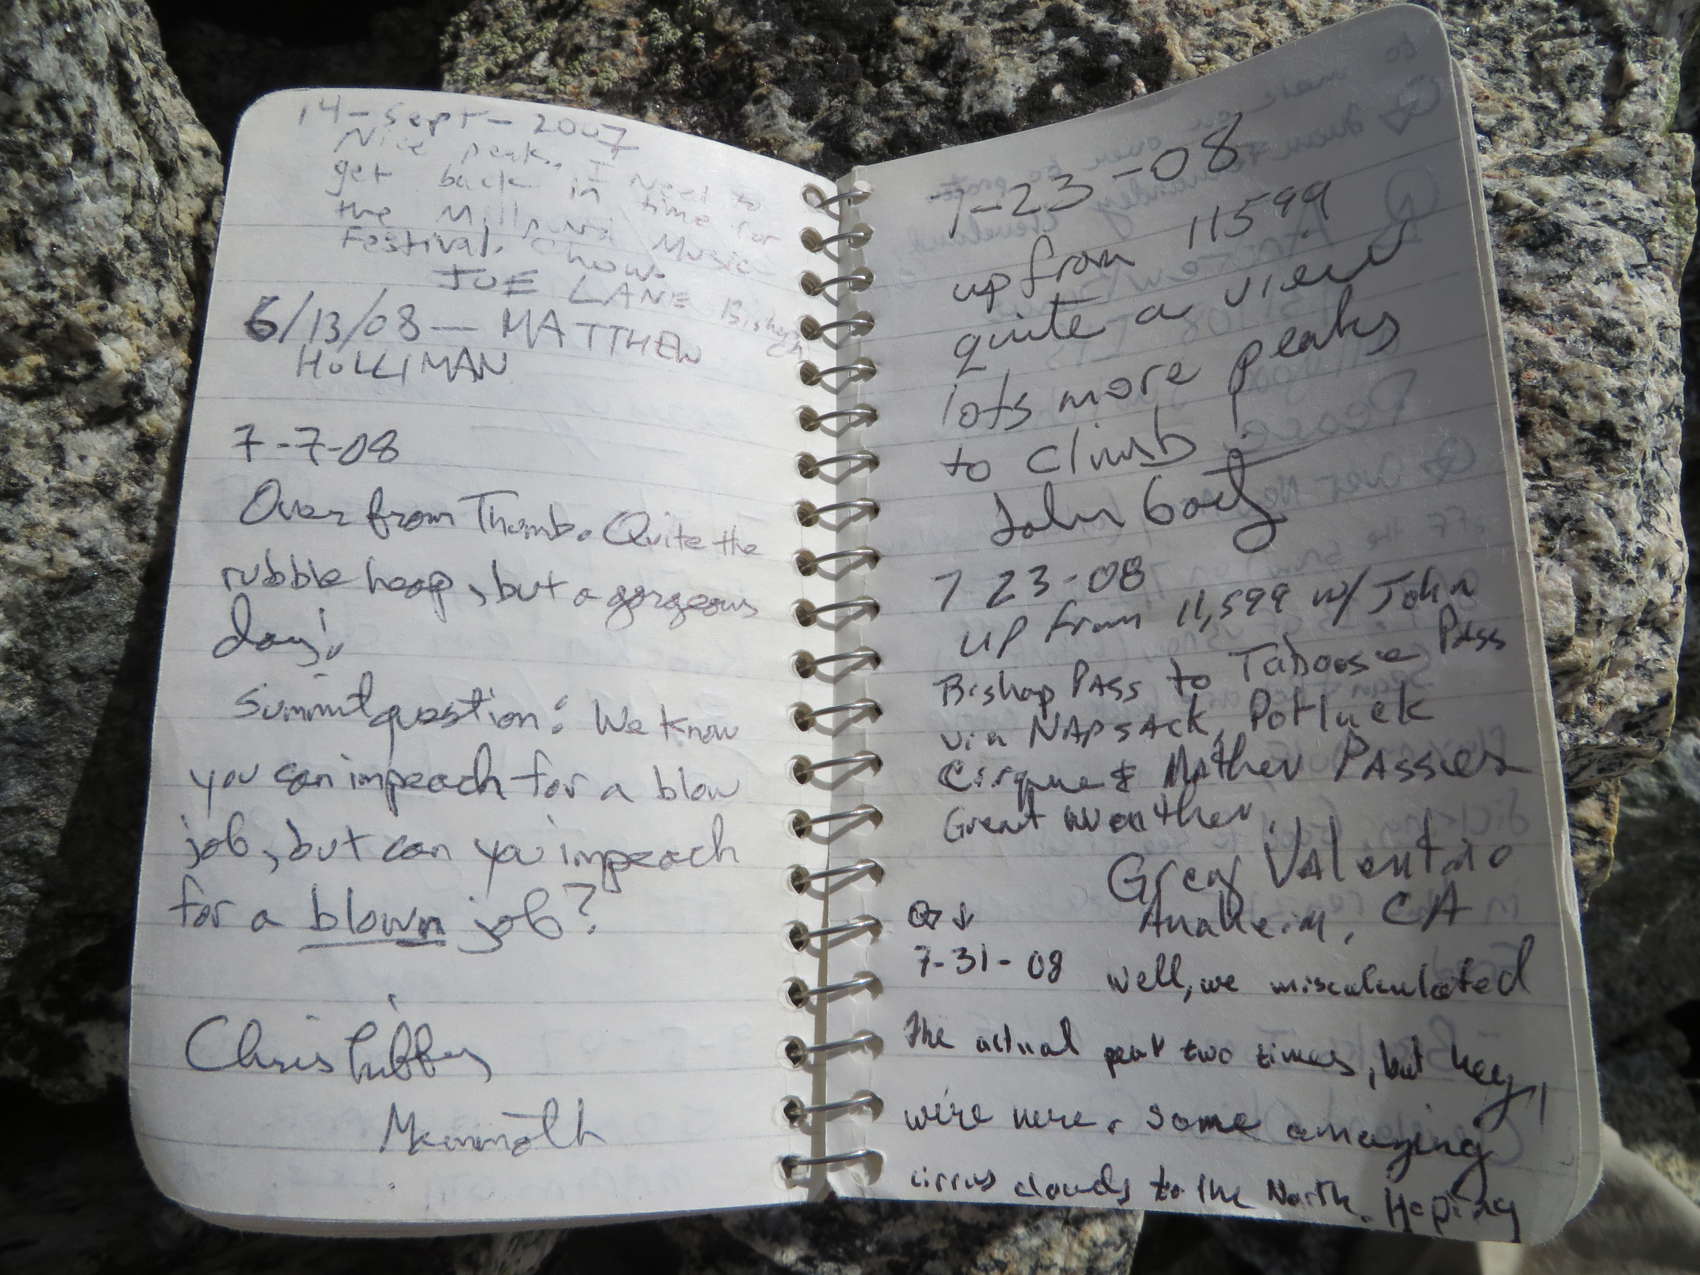 14-Sept-2007
Nice peak. I need to
get back in time for
the Millpond Music
Festival. Chow.
JOE LANE Bishop
CA
6/13/08 — MATTHEW
HOLLIMAN
7-7-08
Over from Thumb. Quite the
rubble heap, but a gorgeous
day!
Summit question: We know
you can impeach for a blow
job, but can you impeach
for a blown job?
Chris
Mammoth
7-23-08
up from 11599
quite a view
lots more peaks
to climb
John
7 23-08
up from 11,599 w/ John
Bishop Pass to Taboose Pass
via NAPSACK, Potluck
Cirque & Mather Passes
Great weather.
Greg Valentino
Anaheim, CA
7-31-08 Well, we miscalculated
the actual peak two times, but hey,
we're here. Some amazing
cirrus clouds to the North. Hoping